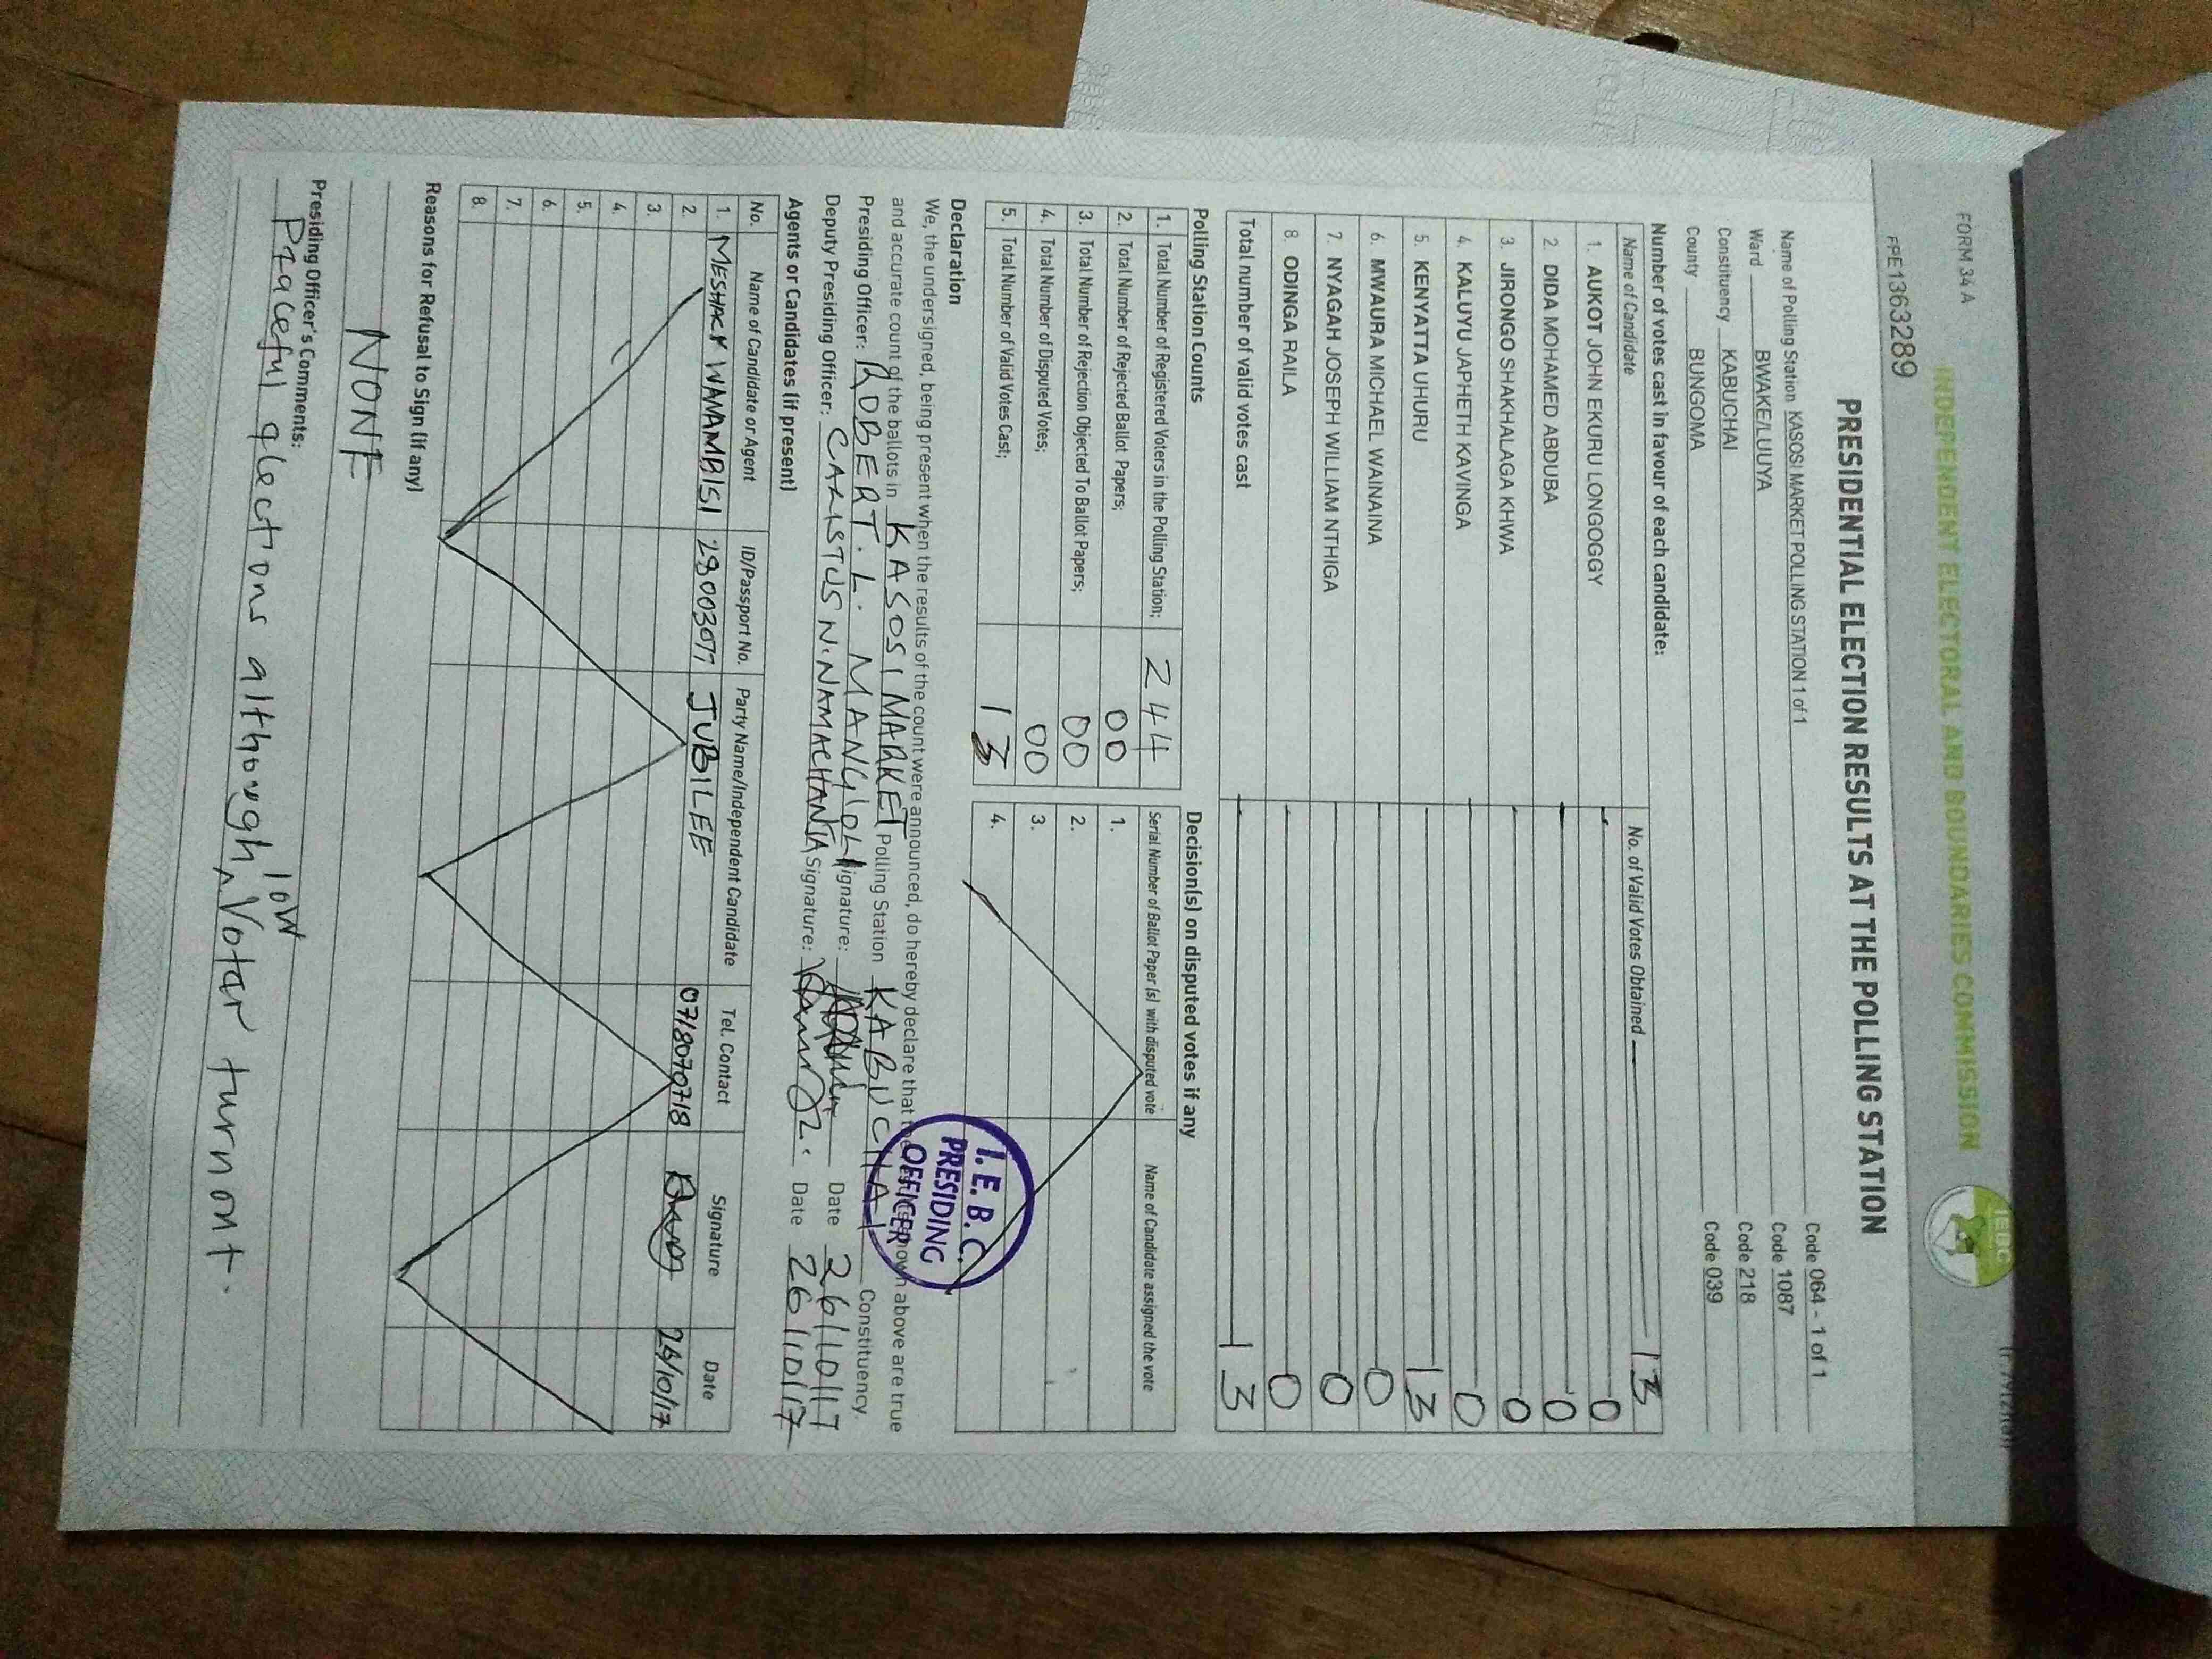 FORM 34 A
INDEPENDENT ELECTORAL AND BOUNDARIES COMMISSION
IEBC
FPE1363289
PRESIDENTIAL ELECTION RESULTS AT THE POLLING STATION
Name of Polling Station KASOSI MARKET POLLING STATION 1 of 1 Code 064 - 1 of 1
Ward BWAKE/LUUYA Code 1087
Constituency KABUCHAI Code 218
County BUNGOMA Code 039
Number of votes cast in favour of each candidate:
Name of Candidate No. of Valid Votes Obtained 13
1. AUKOT JOHN EKURU LONGOGGY 0
2. DIDA MOHAMED ABDUBA 0
3. JIRONGO SHAKHALAGA KHWA 0
4. KALUYU JAPHETH KAVINGA 0
5. KENYATTA UHURU 13
6. MWAURA MICHAEL WAINAINA 0
7. NYAGAH JOSEPH WILLIAM NTHIGA 0
8. ODINGA RAILA 0
Total number of valid votes cast 13
Polling Station Counts
1. Total Number of Registered Voters in the Polling Station; 244
2. Total Number of Rejected Ballot Papers; 00
3. Total Number of Rejection Objected To Ballot Papers; 00
4. Total Number of Disputed Votes; 00
5. Total Number of Valid Votes Cast; 13
Decision(s) on disputed votes if any
Serial Number of Ballot Paper (s) with disputed vote Name of Candidate assigned the vote
1.
2.
3.
4.
Declaration
We, the undersigned, being present when the results of the count were announced, do hereby declare that the shown above are true
and accurate count of the ballots in KASOSI MARKET Polling Station KABUCHAI Constituency.
Presiding Officer: ROBERT. L. MANGOLI Signature: Date 26/10/17
Deputy Presiding Officer: CALISTUS N. NAMACHANJA Signature: Date 26/10/17
I.E.B.C.
PRESIDING
OFFICER
Agents or Candidates (if present)
No. Name of Candidate or Agent ID/Passport No. Party Name/Independent Candidate Tel. Contact Signature Date
1. MESHACK WANAMBISI 28003077 JUBILEE 0718070718 26/10/17
2.
3.
4.
5.
6.
7.
8.
Reasons for Refusal to Sign (if any)
NONE
Presiding Officer's Comments:
Peaceful elections although low Voter turnout.